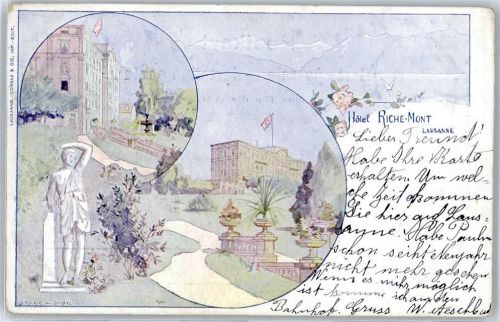 LAUSANNE.-CORBAZ & CIE, IMP.-EDIT.
Hôtel RICHE-MONT
LAUSANNE
Lieber Freund!
Habe Ihre Karte
erhalten. Um wel-
che Zeit kommen
Sie hier auf Laus-
anne. Habe Paulin
schon seit Neujahr
nicht mehr gesehen
Wenn es mir möglich
ist komme ich an den
Bahnhof. Gruss W.